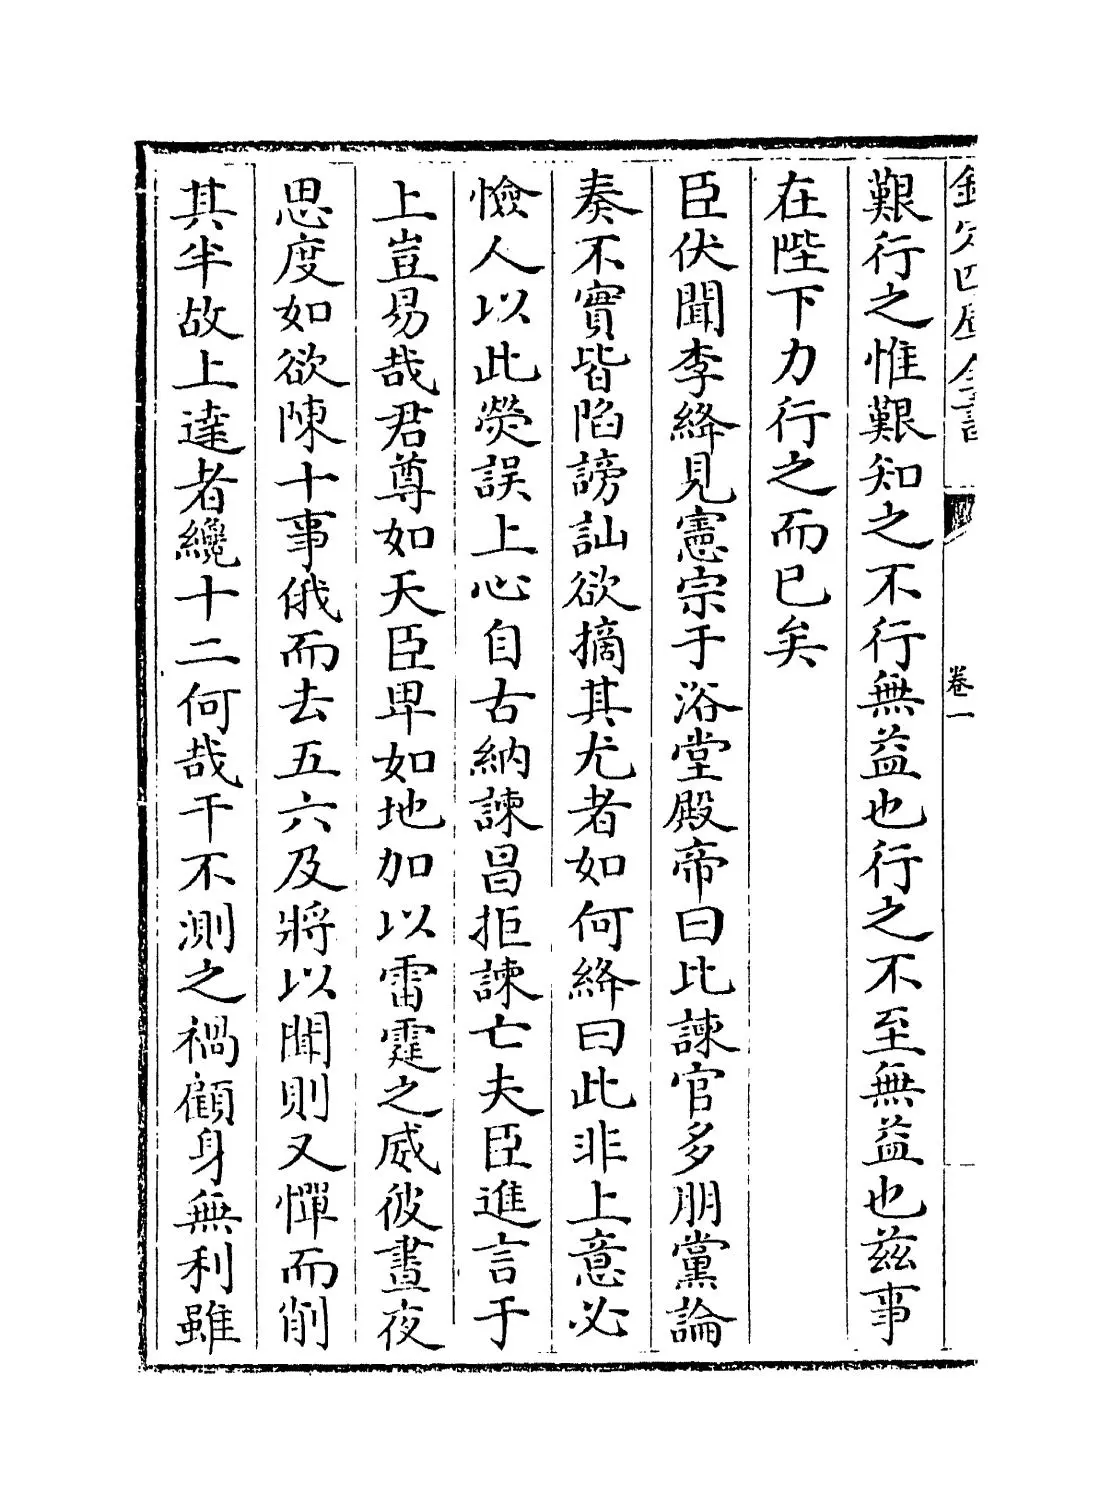 欽定四庫全書
卷一
艱行之惟艱知之不行無益也行之不至無益也茲事
在陛下力行之而已矣
臣伏聞李絳見憲宗于浴堂殿帝曰比諫官多朋黨論
奏不實皆陷謗訕欲摘其尤者如何絳曰此非上意必
憸人以此熒誤上心自古納諫昌拒諫亡夫臣進言于
上豈易哉君尊如天臣卑如地加以雷霆之威彼晝夜
思度如欲陳十事俄而去五六及將以聞則又憚而削
其半故上達者纔十二何哉干不測之禍顧身無利雖